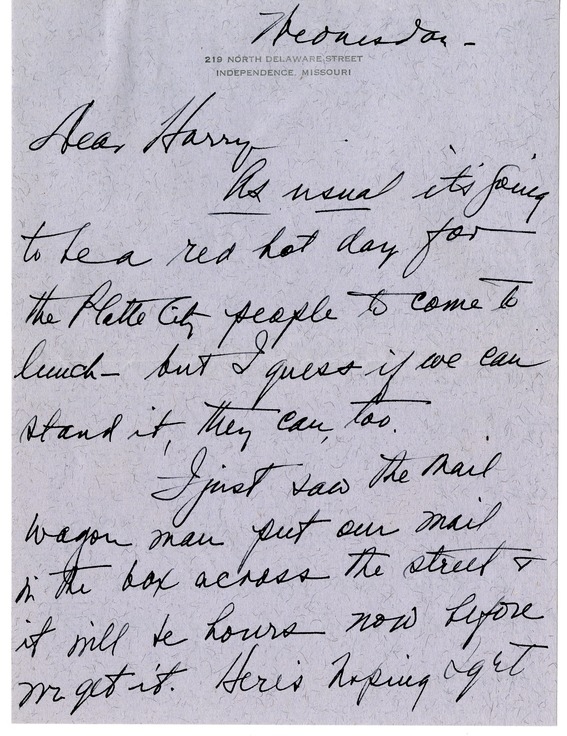 Wednesday -
219 NORTH DELAWARE STREET
INDEPENDENCE, MISSOURI
Dear Harry
As usual it's going
to be a red hot day for
the Platte City people to come to
lunch - but I guess if we can
stand it, they can, too.
I just saw the mail
wagon man put our mail
in the box across the street &
it will be hours now before
we get it. Here's hoping I get